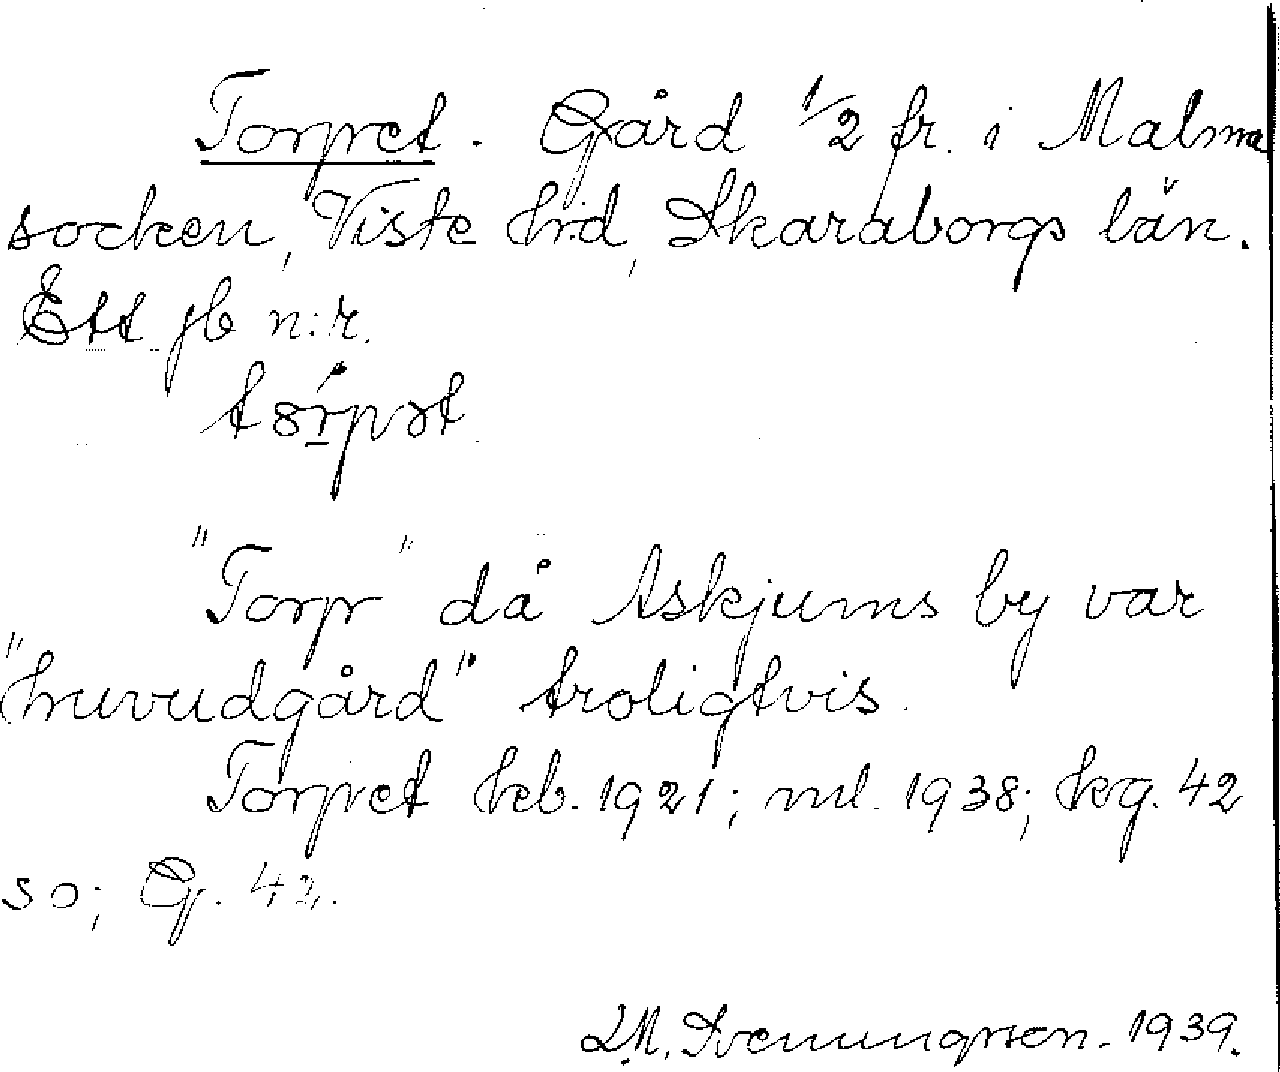 Torpet. Gård 1/2 fr. i Malma
socken, Viste hrd, Skaraborgs län.
Ett jb n:r.
"Torp" då Askjums by var
"huvudgård" troligtvis.
Torpet hrb. 1921; ml. 1938; krg. 42
so; G. 42.
L.M. Svenungsson. 1939.